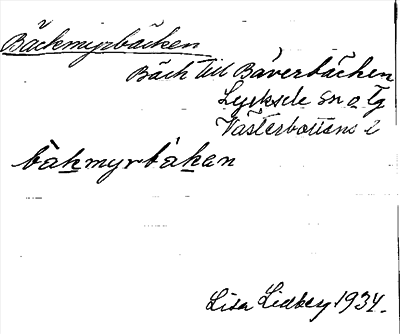 Bäckmyrbäcken
Bäck till Bäverbäcken
Lycksele sn o tg
Västerbottens l
bàk̲myrbàk̲an
Lisa Lidberg 1934.